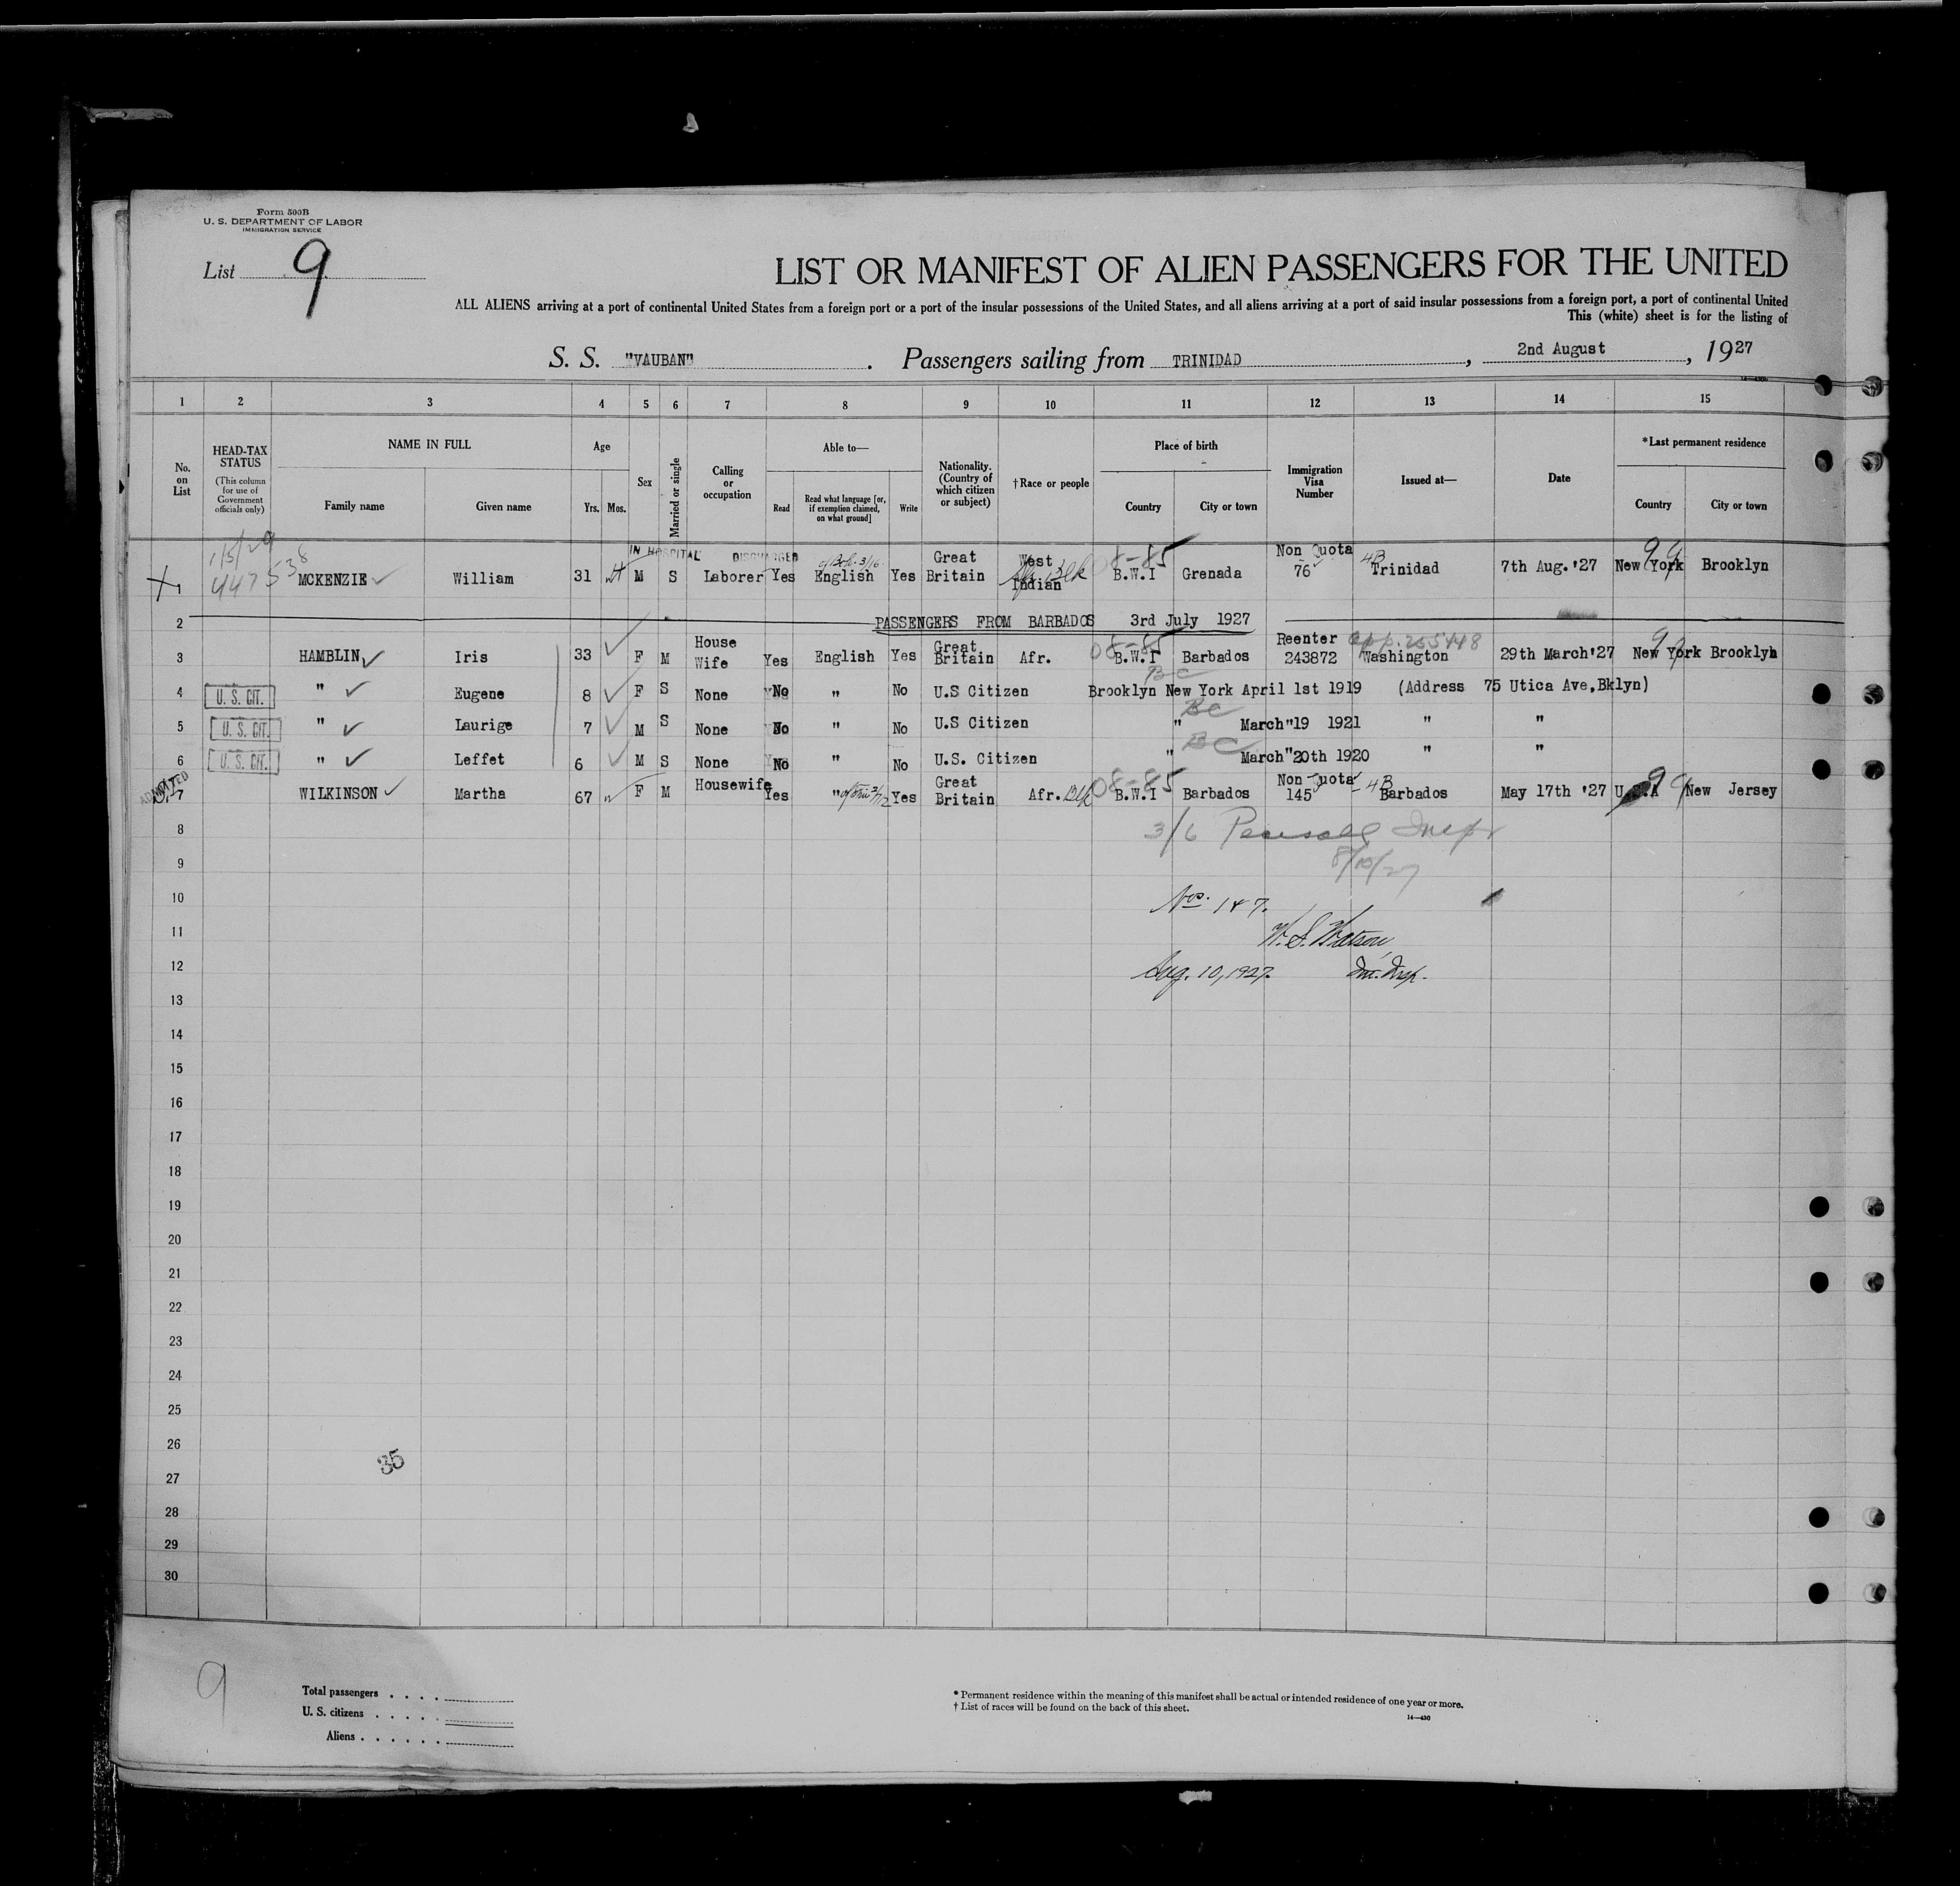 Form 500B
U. S. DEPARTMENT OF LABOR
IMMIGRATION SERVICE
List 9
LIST OR MANIFEST OF ALIEN PASSENGERS FOR THE UNITED
ALL ALIENS arriving at a port of continental United States from a foreign port or a port of the insular possessions of the United States, and all aliens arriving at a port of said insular possessions from a foreign port, a port of continental United
This (white) sheet is for the listing of
S. S. "VAUBAN". Passengers sailing from TRINIDAD, 2nd August, 1927
1 2 3 4 5 6 7 8 9 10 11 12 13 14 15
No. on List
HEAD-TAX STATUS (This column for use of Government officials only)
NAME IN FULL
Family name Given name
Age
Yrs. Mos.
Sex
Married or single
Calling or occupation
Able to—
Read Read what language [or, if exemption claimed, on what ground] Write
Nationality. (Country of which citizen or subject)
†Race or people
Place of birth
Country City or town
Immigration Visa Number
Issued at—
Date
*Last permanent residence
Country City or town
IN HOSPITAL DISCHARGED
1 447538 MCKENZIE William 31 M S Laborer Yes English Yes Great Britain West Indian Blk 08-85 B.W.I Grenada Non Quota 76 4B Trinidad 7th Aug. '27 New York Brooklyn
2 PASSENGERS FROM BARBADOS 3rd July 1927
3 HAMBLIN Iris 33 F M House Wife Yes English Yes Great Britain Afr. 08-85 B.W.I Barbados Reenter 243872 Washington 29th March'27 New York Brooklyn
4 U. S. CIT. " Eugene 8 F S None No " No U.S Citizen BC Brooklyn New York April 1st 1919 (Address 75 Utica Ave,Bklyn)
5 U. S. CIT. " Laurige 7 M S None No " No U.S Citizen BC " March"19 1921 " "
6 U. S. CIT. " Leffet 6 M S None No " No U.S. Citizen BC " March"20th 1920 " "
ADMITTED
7 WILKINSON Martha 67 F M Housewife Yes " Yes Great Britain Afr. Blk 08-85 B.W.I Barbados Non Quota 145 4B Barbados May 17th '27 U.S.A New Jersey
8
3/6
9
8/10/27
10
Nos. 1 & 7.
11
W. S. Watson
12
Aug. 10, 1927. Imm. Insp.
13
14
15
16
17
18
19
20
21
22
23
24
25
26
35
27
28
29
30
9
Total passengers
U. S. citizens
Aliens
* Permanent residence within the meaning of this manifest shall be actual or intended residence of one year or more.
† List of races will be found on the back of this sheet.
14—430